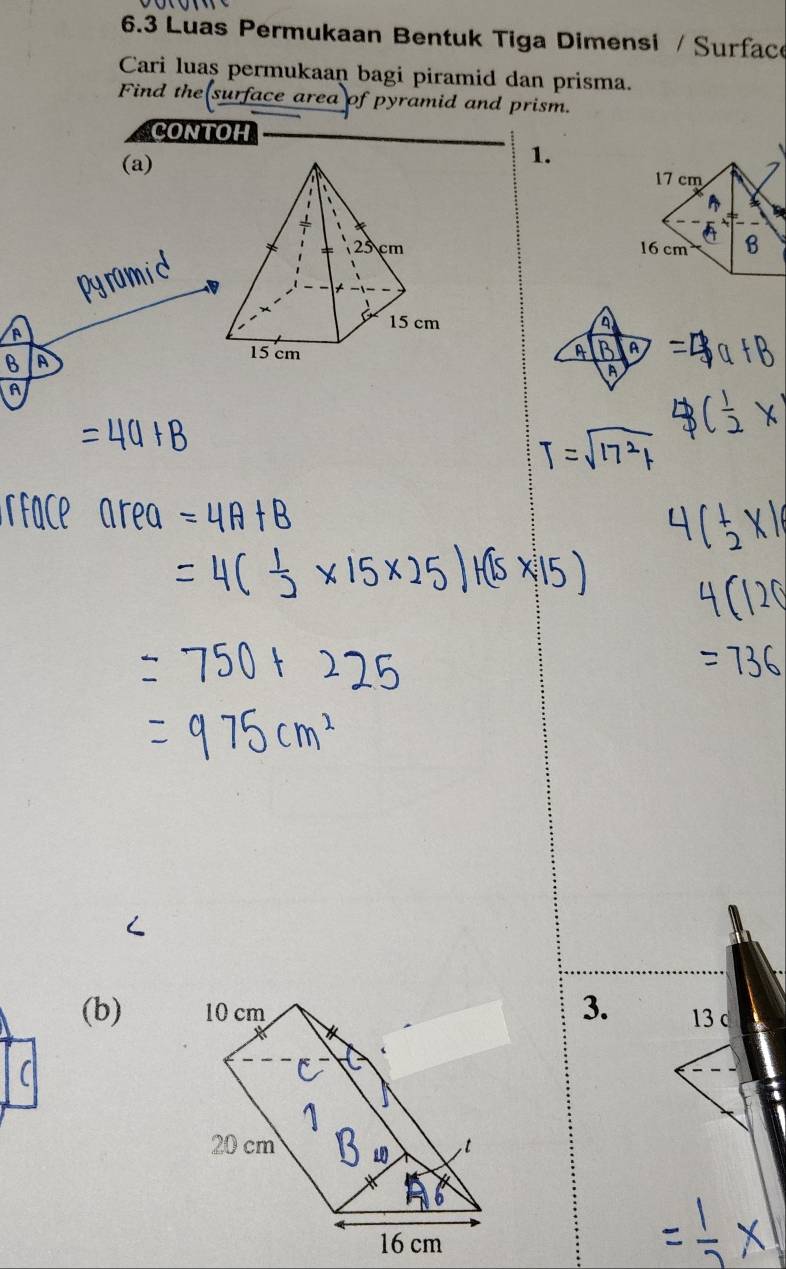 6.3 Luas Permukaan Bentuk Tiga Dimensi / Surface
Cari luas permukaan bagi piramid dan prisma.
Find the surface area of pyramid and prism.
CONTOH
(a)
25 cm
15 cm
15 cm
pyramid
A
B A
A
= 4a + B
rface area = 4A + B
= 4( 1/2 × 15 × 25 ) + (15 × 15)
= 750 + 225
= 975 cm²
1.
17 cm
A
A
B
16 cm
A
A B A
A
= 4a + B
4( 1/2 ×
T = √17² +
4( 1/2 × 1
4(120
= 736
(b)
10 cm
C
C
20 cm
B 10
t
A 6
16 cm
C
3.
13 c
= 1/2 ×